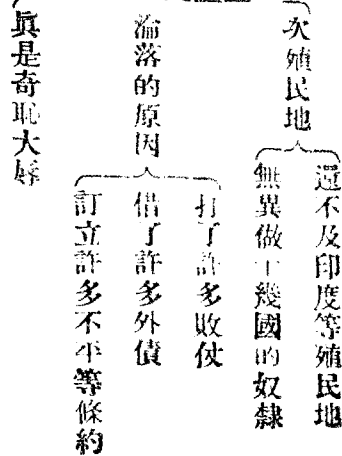 次殖民地
還不及印度等殖民地
無異做十幾國的奴隸
淪落的原因
打了許多敗仗
借了許多外債
訂立許多不平等條約
眞是奇恥大辱